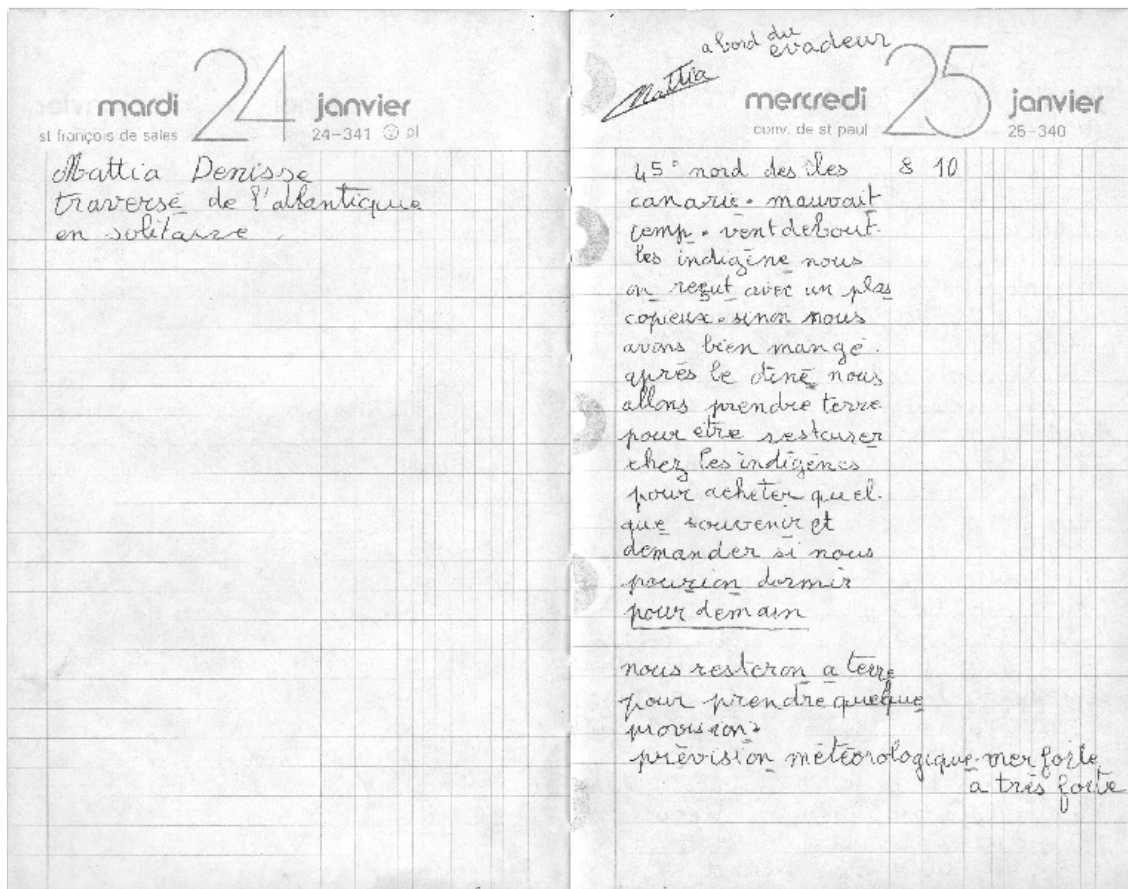 mardi 24 janvier
st françois de sales 24-341
Mattia Denisse
traversé de l'atlantique
en solitaire.
a bord du
evadeur
Mattia
mercredi 25 janvier
conv. de st paul 25-340
45° nord des îles 8 10
canarie. mauvait
temp. vent debout.
les indigène nous
on reçut avec un plas
copieux. sinon nous
avons bien mangé.
après le diné nous
allons prendre terre
pour être restaurer
chez les indigènes
pour acheter quel-
que souvenir et
demander si nous
pourion dormir
pour demain
nous resteron a terre
pour prendre queque
provision.
prévision météorologique. mer forte
a très forte